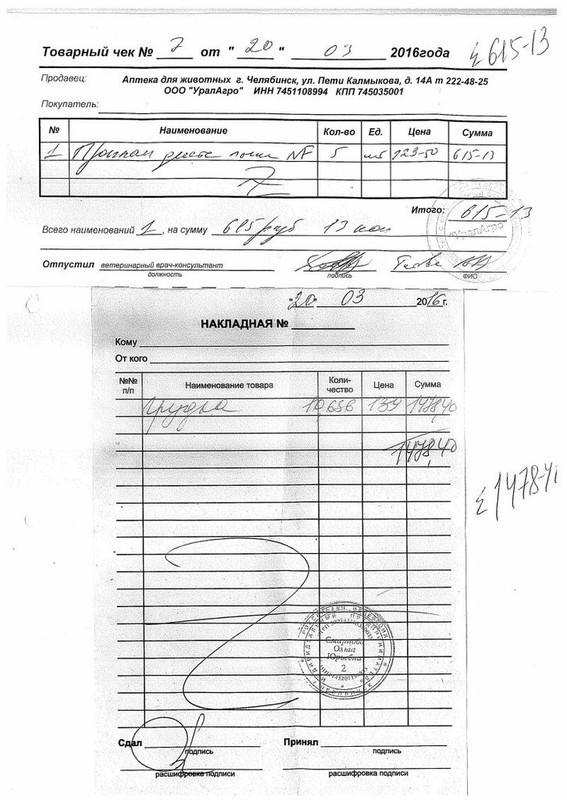 Товарный чек № 7 от "20" 03 2016года
£ 615-13
Продавец: Аптека для животных г. Челябинск, ул. Пети Калмыкова, д. 14А т 222-48-25
ООО "УралАгро" ИНН 7451108994 КПП 745035001
Покупатель:
№ Наименование Кол-во Ед. Цена Сумма
1 NF 5 шт 123-50 615-13
Итого: 615-13
Всего наименований 1, на сумму 615 руб 13 коп
УралАгро
Отпустил ветеринарный врач-консультант
должность подпись ФИО
20 03 2016 г.
НАКЛАДНАЯ №
Кому
От кого
№№ п/п Наименование товара Коли-чество Цена Сумма
грудка
1478,40
Смирнова
Ольга
Юрьевна
2
Сдал Принял
подпись подпись
расшифровка подписи расшифровка подписи